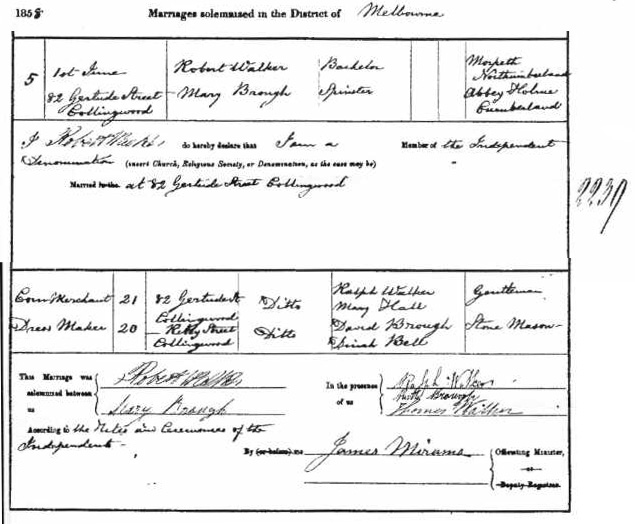 1858 Marriages solemnized in the District of Melbourne
5 1st June Robert Walker Bachelor Morpeth
Northumberland
82 Gertrude Street Mary Brough Spinster Abbey Holme
Collingwood Cumberland
I Robert Walker do hereby declare that I am a Member of the Independent
Denomination (insert Church, Religious Society, or Denomination, as the case may be)
Married in the at 82 Gertrude Street Collingwood
2239
Corn Merchant 21 82 Gertrude St Ditto Ralph Walker Gentleman
Collingwood Mary Hall
Dress Maker 20 Street Ditto David Brough Stone Mason
Collingwood Dinah Bell
This Marriage was Robert Walker In the presence Ralph Walker
solemnized between of us Brough
us Mary Brough Thomas Walker
According to the Rites and Ceremonies of the
Independent
By (or before) me James Mirams Officiating Minister,
or
Deputy Registrar.